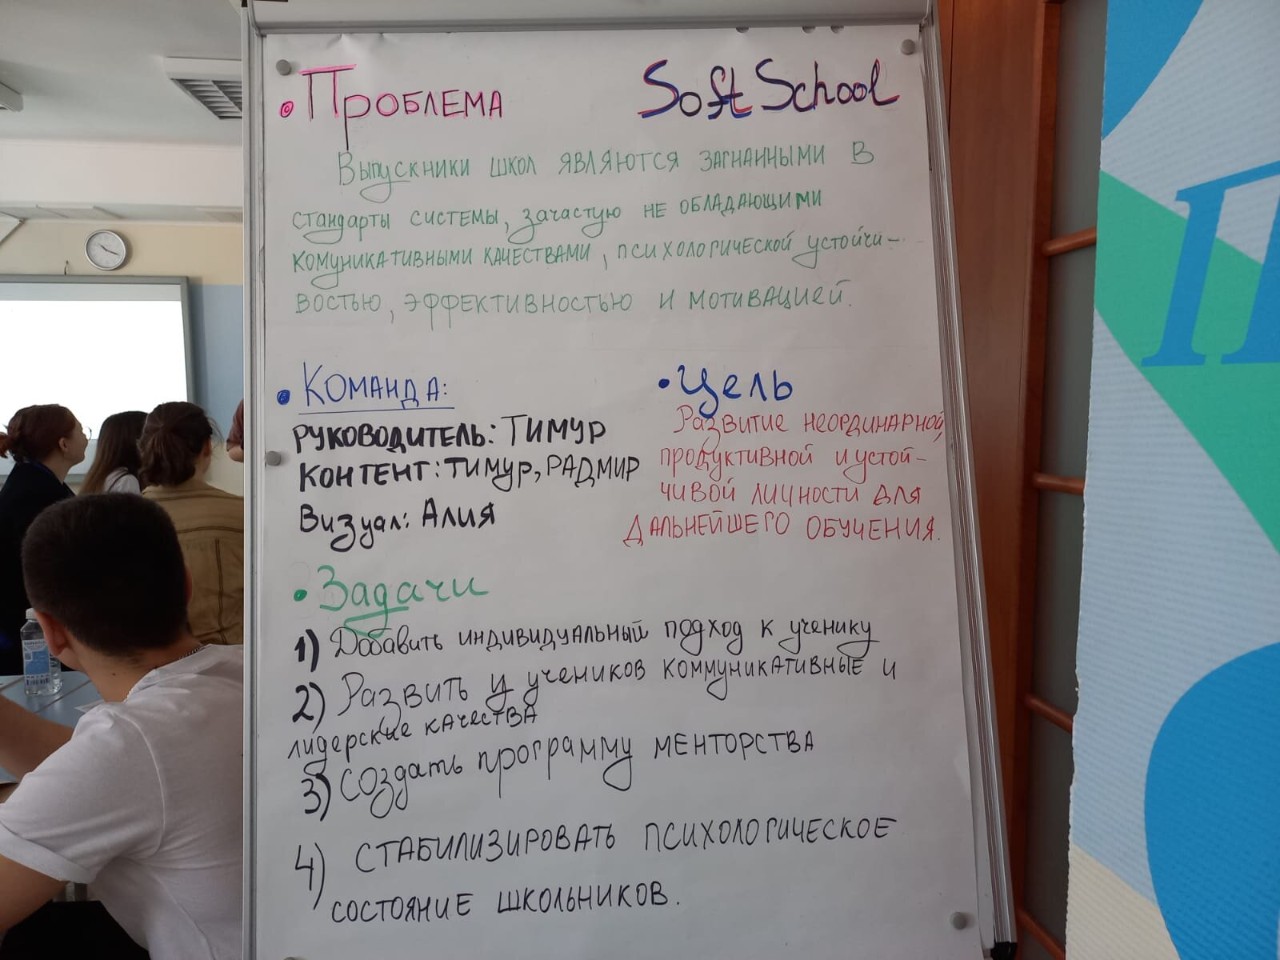 • Проблема
Soft School
Выпускники школ являются загнанными в
стандарты системы, зачастую не обладающими
комуникативными качествами, психологической устойчи-
востью, эффективностью и мотивацией.
• Команда:
Руководитель: Тимур
Контент: Тимур, Радмир
Визуал: Алия
• Цель
Развитие неординарной,
продуктивной и устой-
чивой личности для
дальнейшего обучения.
• Задачи
1) Добавить индивидуальный подход к ученику
2) Развить у учеников коммуникативные и
лидерские качества
3) Создать программу менторства
4) Стабилизировать психологическое
состояние школьников.